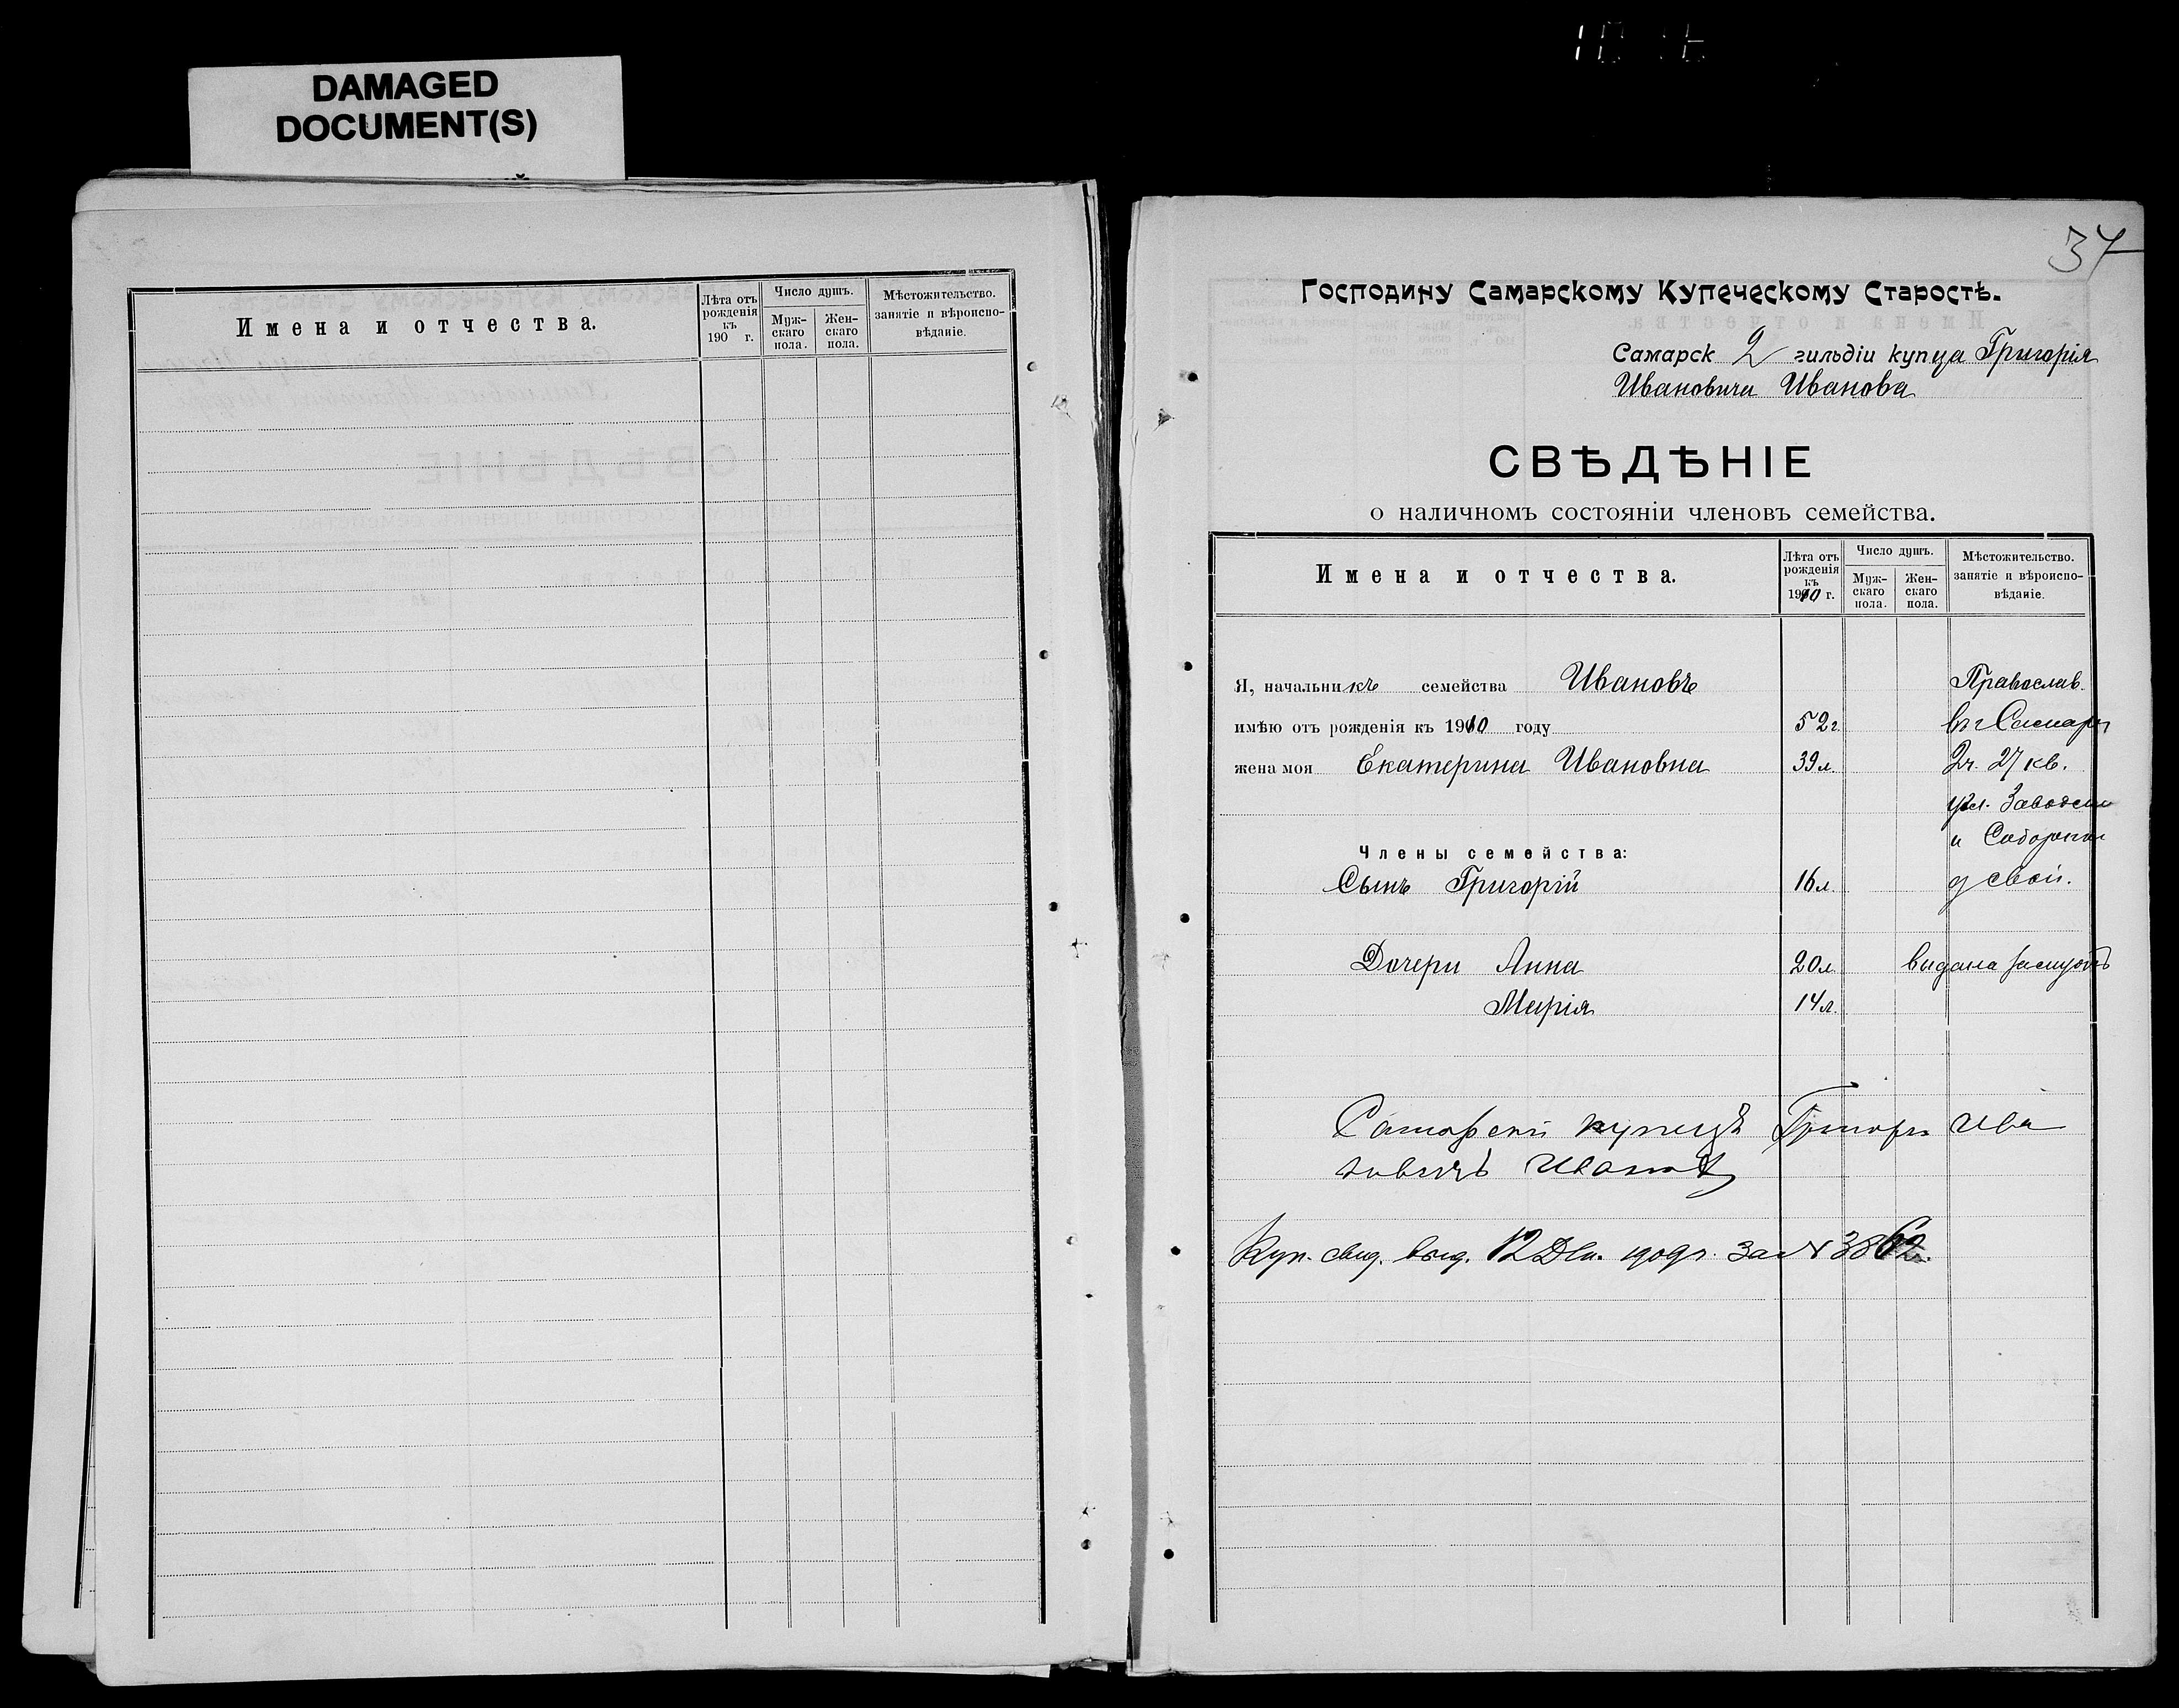 DAMAGED
DOCUMENT(S)
Имена и отчества.
Лѣта отъ рожденія къ 190 г.
Число душъ.
Муж-скаго пола.
Жен-скаго пола.
Мѣстожительство. занятіе и вѣроиспо-вѣданіе.
37
Господину Самарскому Купеческому Старостѣ.
Самарск 2 гильдіи купца Григорія
Ивановича Иванова
СВѢДѢНІЕ
о наличномъ состояніи членовъ семейства.
Имена и отчества.
Лѣта отъ рожденія къ 1910 г.
Число душъ.
Муж-скаго пола.
Жен-скаго пола.
Мѣстожительство. занятіе и вѣроиспо-вѣданіе.
Я, начальникъ семейства Ивановъ Православ.
имѣю отъ рожденія къ 1910 году 52 г. въ г Самарѣ
жена моя Екатерина Ивановна 39 л. 2 ч. 27 кв.
Заводской
и Соборной
Члены семейства:
Сынъ Григорій 16 л. д свой.
Дочери Анна 20 л. выдана замужъ
Марія 14 л.
Самарскій купецъ Григорій Ива
новичъ Ивановъ
Куп. свид. выд. 12 Дек. 1909 г. за № 3862.